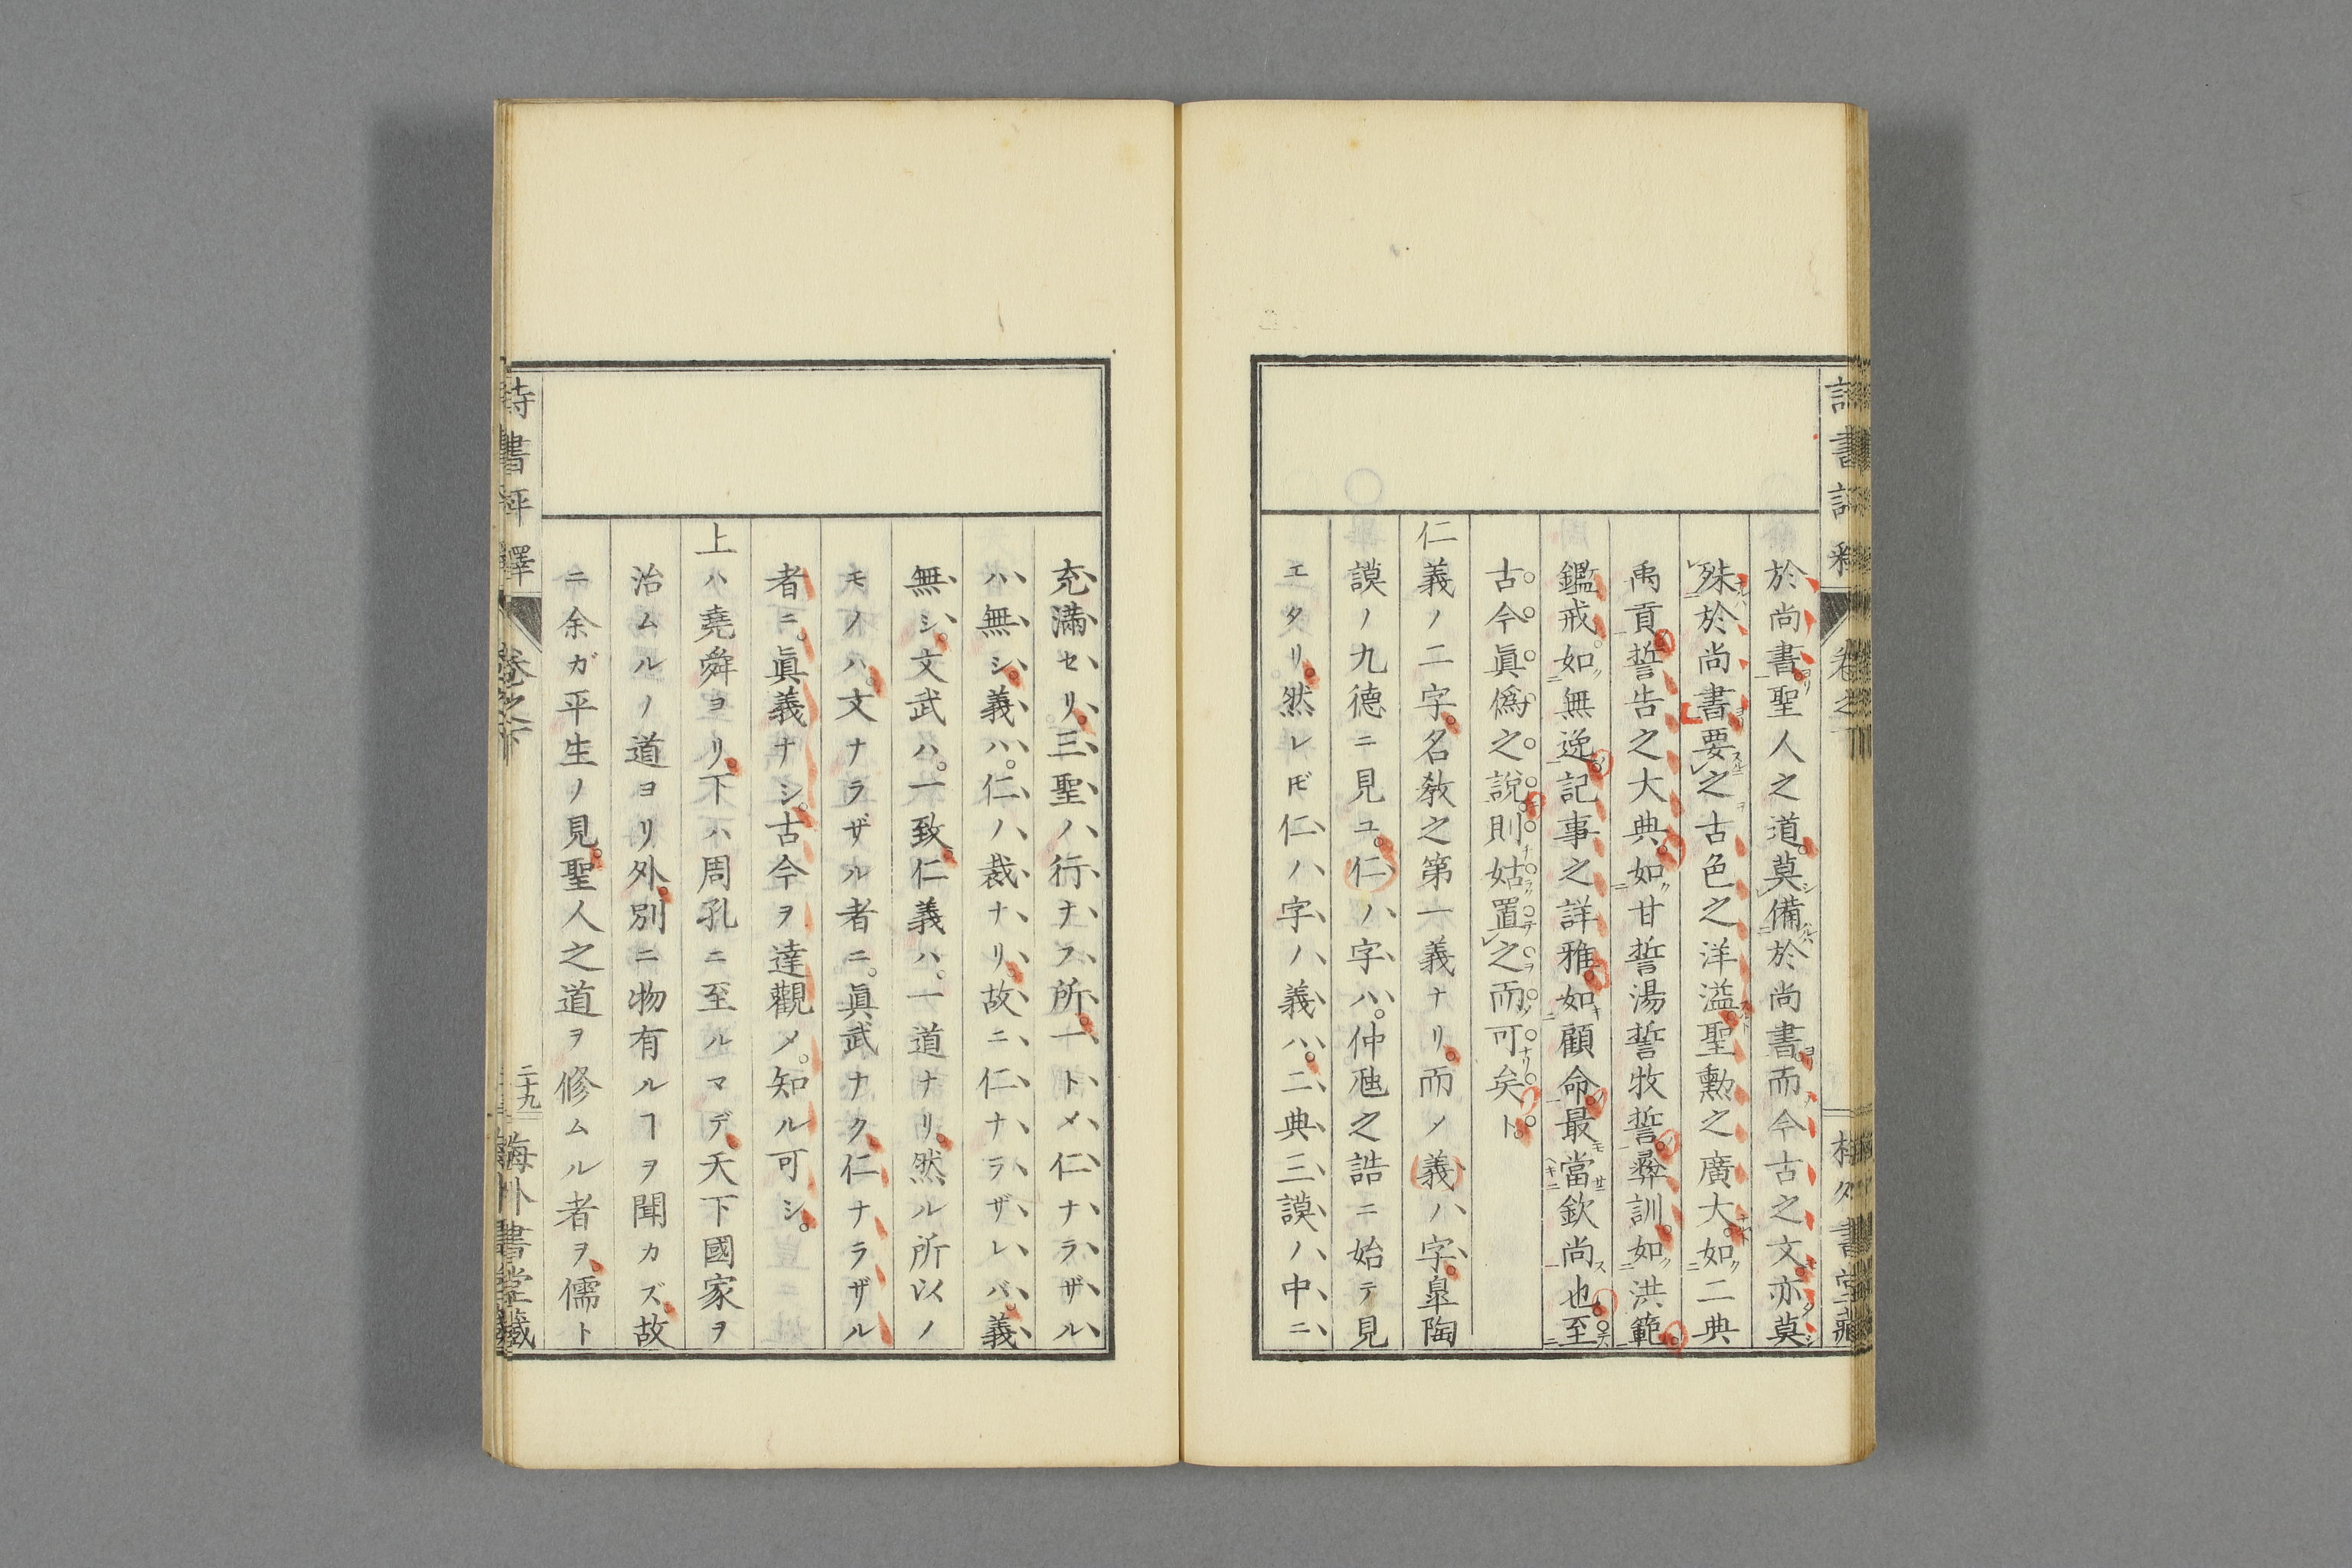 於尚書聖人之道。莫備於尚書。而今古之文。亦莫
殊於尚書。要之古色之洋溢。聖勲之廣大。如二典
禹貢誓告之大典。如甘誓湯誓牧誓。彜訓。如洪範。
鑑戒。如無逸。記事之詳雅。如顧命。最當欽尚也。至
古今眞僞之說。則姑置之而可矣ト。
仁義ノ二字。名敎之第一義ナリ。而ノ義ハ字。皐陶
謨ノ九德ニ見ユ。仁ノ字ハ。仲虺之誥ニ始テ見
エタリ。然レ𪜈仁ノ字ノ義ハ。二典三謨ノ中ニ
充滿セリ。三聖ノ行ナフ所。一トメ仁ナラザル
ハ無シ。義ハ。仁ノ裁ナリ。故ニ仁ナラザレバ。義
無シ。文武ハ。一致。仁義ハ。一道ナリ。然ル所以ノ
モノハ。文ナラザル者ニ。眞武ナク。仁ナラザル
者ニ。眞義ナシ。古今ヲ達觀メ。知ル可シ。
上ハ堯舜ヨリ。下ハ周孔ニ至ルマデ。天下國家ヲ
治ムルノ道ヨリ外。別ニ物有ルヿヲ聞カズ。故
ニ余ガ平生ノ見。聖人之道ヲ修ムル者ヲ。儒ト
詩書評釋
卷之下
二十九
梅外書堂藏